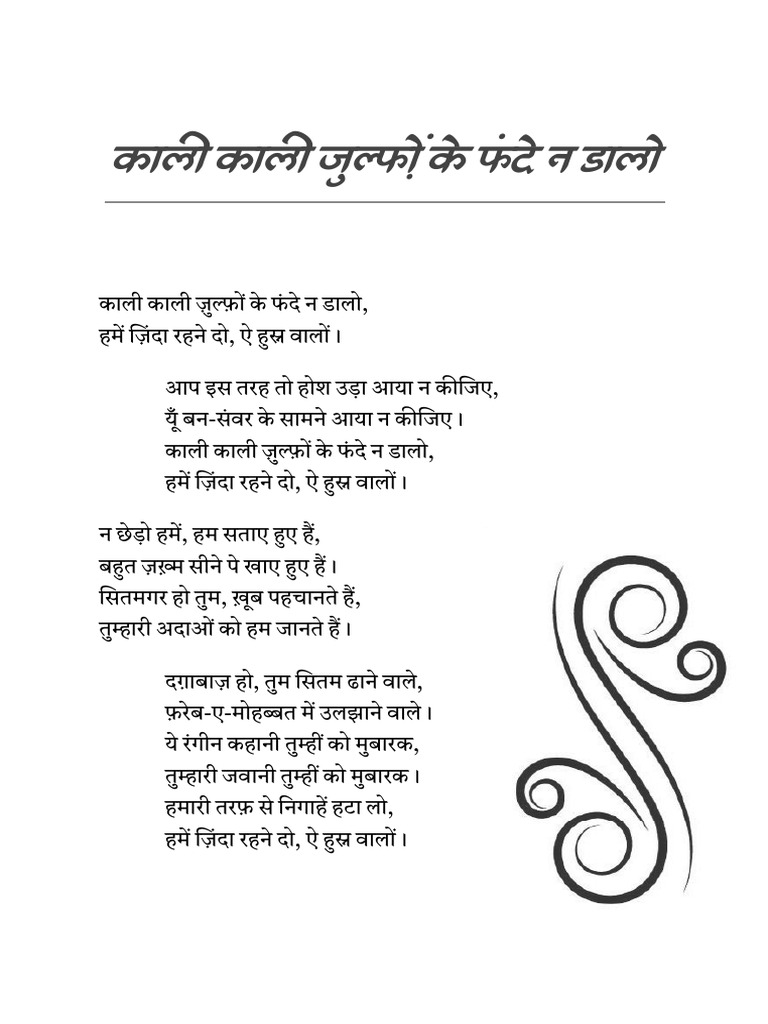 काली काली जुल्फों के फंदे न डालो
काली काली ज़ुल्फ़ों के फंदे न डालो,
हमें ज़िंदा रहने दो, ऐ हुस्न वालों ।
आप इस तरह तो होश उड़ा आया न कीजिए,
यूँ बन-संवर के सामने आया न कीजिए ।
काली काली ज़ुल्फ़ों के फंदे न डालो,
हमें ज़िंदा रहने दो, ऐ हुस्न वालों ।
न छेड़ो हमें, हम सताए हुए हैं,
बहुत ज़ख़्म सीने पे खाए हुए हैं ।
सितमगर हो तुम, ख़ूब पहचानते हैं,
तुम्हारी अदाओं को हम जानते हैं ।
दग़ाबाज़ हो, तुम सितम ढाने वाले,
फ़रेब-ए-मोहब्बत में उलझाने वाले ।
ये रंगीन कहानी तुम्हीं को मुबारक,
तुम्हारी जवानी तुम्हीं को मुबारक ।
हमारी तरफ़ से निगाहें हटा लो,
हमें ज़िंदा रहने दो, ऐ हुस्न वालों ।